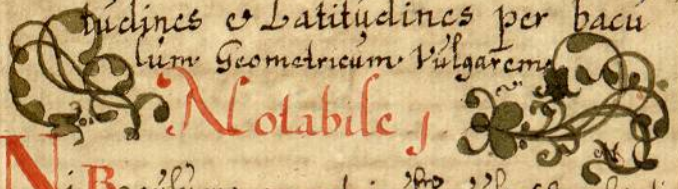 tudines & Latitudines per bacu
lum Geometricum Vulgarem
Notabile j